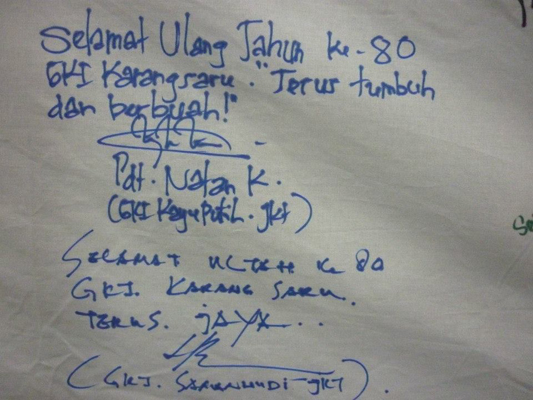 Selamat Ulang Tahun ke-80
GKI Karangsaru. "Terus tumbuh
dan berbuah!"
Pdt. Natan K.
(GKI Kayu Putih. jkt)
SELAMAT ULTAH Ke 80
GKI. KARANG SARU.
TERUS. JAYA...
(GKI. SAMANHUDI-JKT).